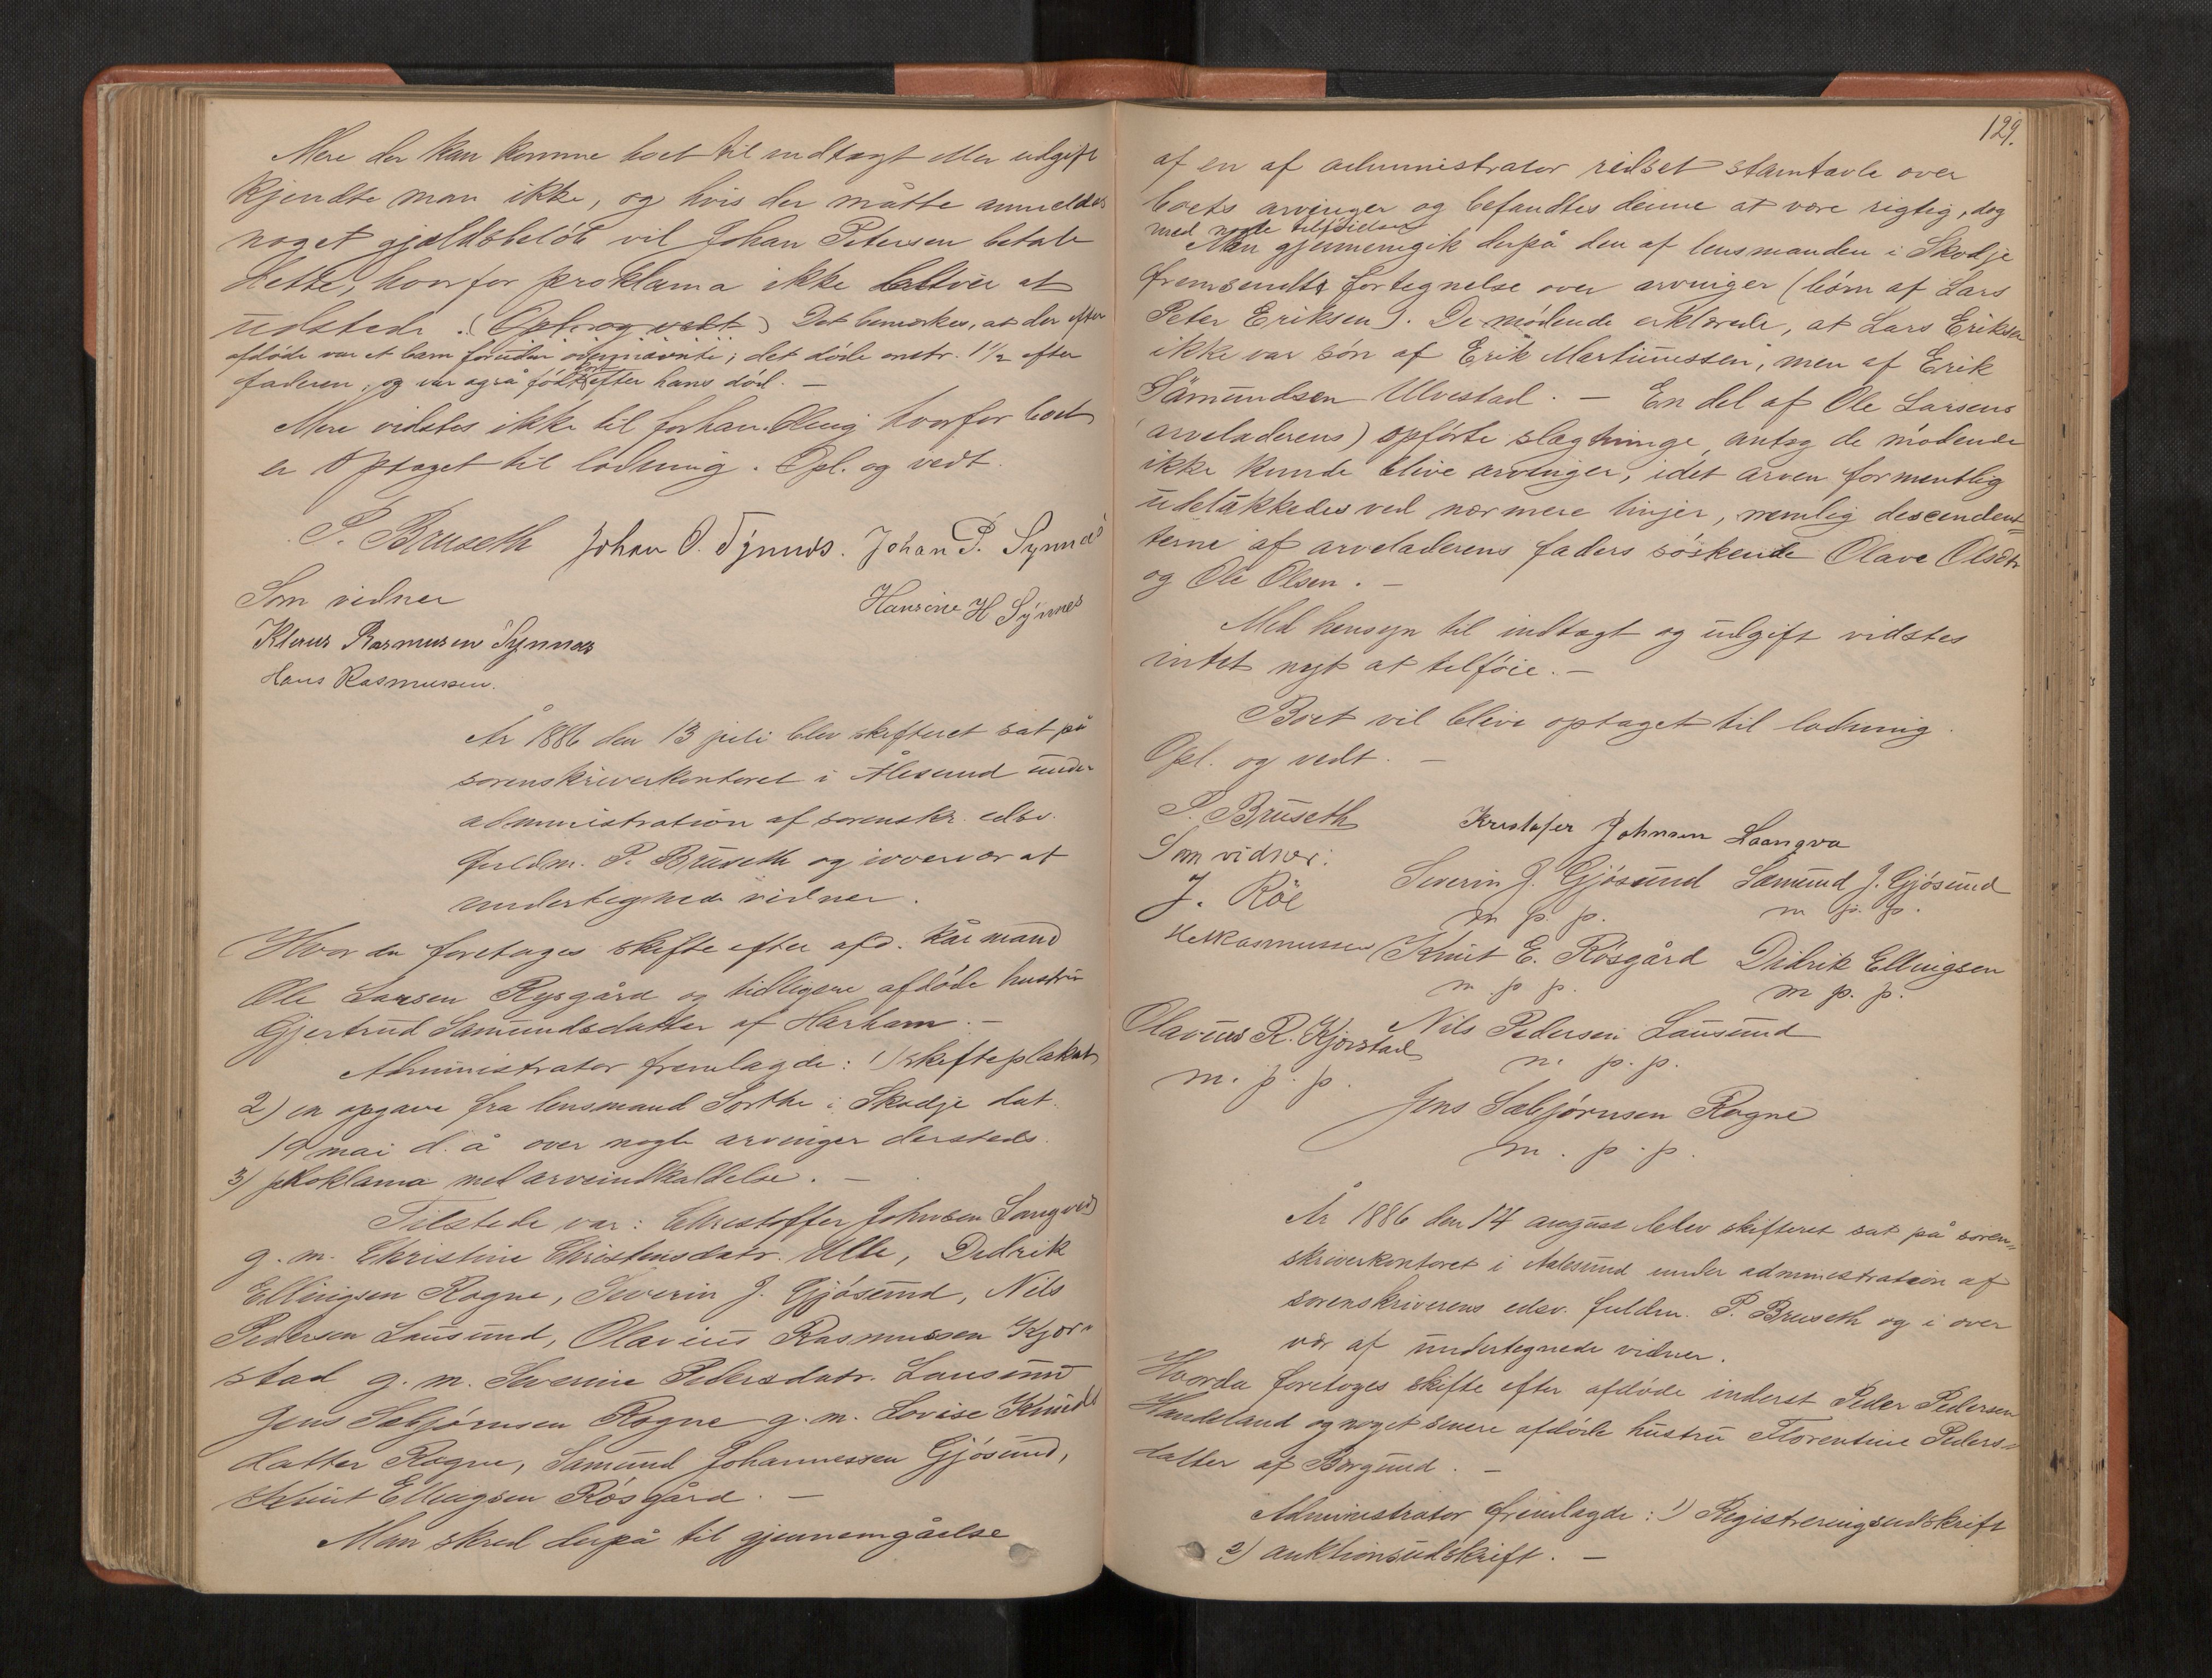 Mere der kan komme boet til indtægt eller udgift
kjendte man ikke, og hvis der måtte anmeldes
noget gjældsbeløb vil Johan Petersen betale
dette, hvorfor proklama ikke blev at
udstede. (Opl. og vedt) Det bemærkes, at der efter
afdøde var et barn foruden ovennævnte; det døde omtr. 1 1/2 efter
faderen, og var også født efter hans død. —
Mere vidstes ikke til forhandling hvorfor boet
er optaget til lodning. Opl. og vedt.
P. Bruseth Johan O. Synnes. Johan P. Synnes
Som vidner Hansine H Synnes
Klaus Rasmusen Synnes
Hans Rasmussen.
År 1886 den 13 juli blev skifteret sat på
sorenskriverkontoret i Ålesund under
administration af sorenskr. edsv.
fuldm. P. Bruseth og iovervær af
undertegnede vidner.
Hvor da foretages skifte efter afd. kårmand
Ole Larsen Rysgård og tidligere afdøde hustru
Gjertrud Samundsdatter af Harham. —
Administrator fremlagde: 1) skifteplakat
2) en opgave fra lensmand Sorthe i Skodje dat.
19 mai d. å over nogle arvinger dersteds.
3) proklama med arveindkaldelse. —
Tilstede var: Christoffer Johnsen Langva
g. m. Christine Christensdatr. Ulle, Didrik
Ellingsen Rogne, Severin J. Gjøsund, Nils
Pedersen Lausund, Olavius Rasmussen Kjør-
stad g. m. Severine Pedersdatr. Lausund
Jens Sæbjørnsen Rogne g. m. Lovise Knuds
datter Rogne, Samund Johannessen Gjøsund,
Knut Ellingsen Røsgård. —
Man skred derpå til gjennemgåelse
129.
af en af administrator ridset stamtavle over
boets arvinger og befandtes denne at være rigtig, dog
med nogle tilføielser
Man gjennemgik derpå den af lensmanden i Skodje
fremsendte fortegnelse over arvinger (børn af Lars
Peter Eriksen). De mødende erklærede, at Lars Eriksen
ikke var søn af Erik Martinussen, men af Erik
Sämundsen Ulvestad. — En del af Ole Larsens
(arveladerens) opførte slægtninge antog de mødende
ikke kunde blive arvinger, idet arven formentlig
udelukkedes ved nærmere linjer, nemlig descenden-
terne af arveladerens faders søskende Olave Olsdtr
og Ole Olsen. —
Med hensyn til indtægt og udgift vidstes
intet nyt at tilføie. —
Boet vil blive optaget til lodning.
Opl. og vedt. —
P. Bruseth Kristofer Johnsen Laangva
Som vidner: Severin J. Gjøsund Samund J. Gjøsund
J. Röe m. p. p. m. p. p.
H Rasmussen Knut E. Røsgård Didrik Ellingsen
m. p. p. m. p. p.
Olavius R. Kjørstad Nils Pedersen Lausund
m. p. p. m. p. p.
Jens Sæbjørnsen Rogne
m. p. p.
År 1886 den 14 august blev skifteret sat på soren-
skriverkontoret i Aalesund under administration af
sorenskriverens edsv. fuldm. P. Bruseth og i over
vær af undertegnede vidner.
Hvorda foretoges skifte efter afdøde inderst Peder Pedersen
Handeland og noget senere afdøde hustru Florentine Peders-
datter af Borgund. —
Administrator fremlagde: 1) Registreringsudskrift
2) auktionsudskrift. —